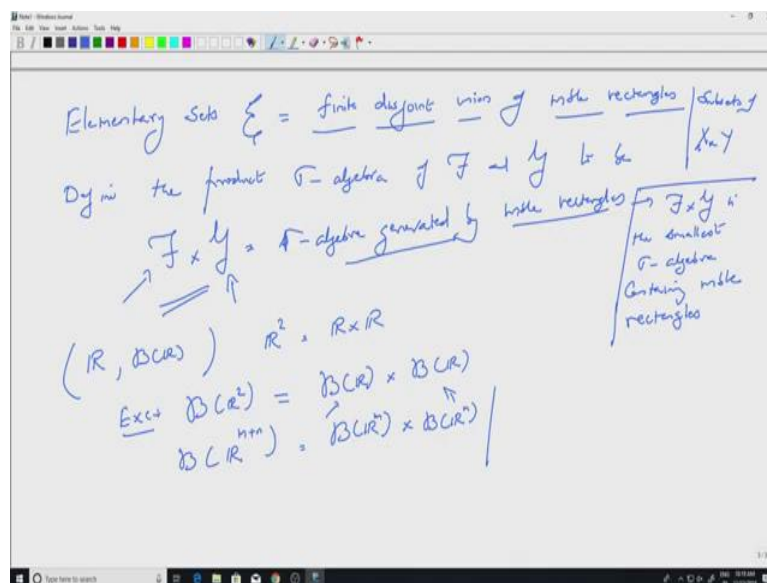 Note1 - Windows Journal
File Edit View Insert Actions Tools Help
Elementary Sets ξ = finite disjoint union of mble rectangles | Subsets of X x Y
Define the product σ-algebra of F and G to be
F x G = σ-algebra generated by mble rectangles → F x G is
the smallest
σ-algebra
Containing mble
rectangles
(R, B(R)) R² = R x R
Exc: B(R²) = B(R) x B(R)
B(R^{m+n}) = B(R^m) x B(R^n)
Type here to search